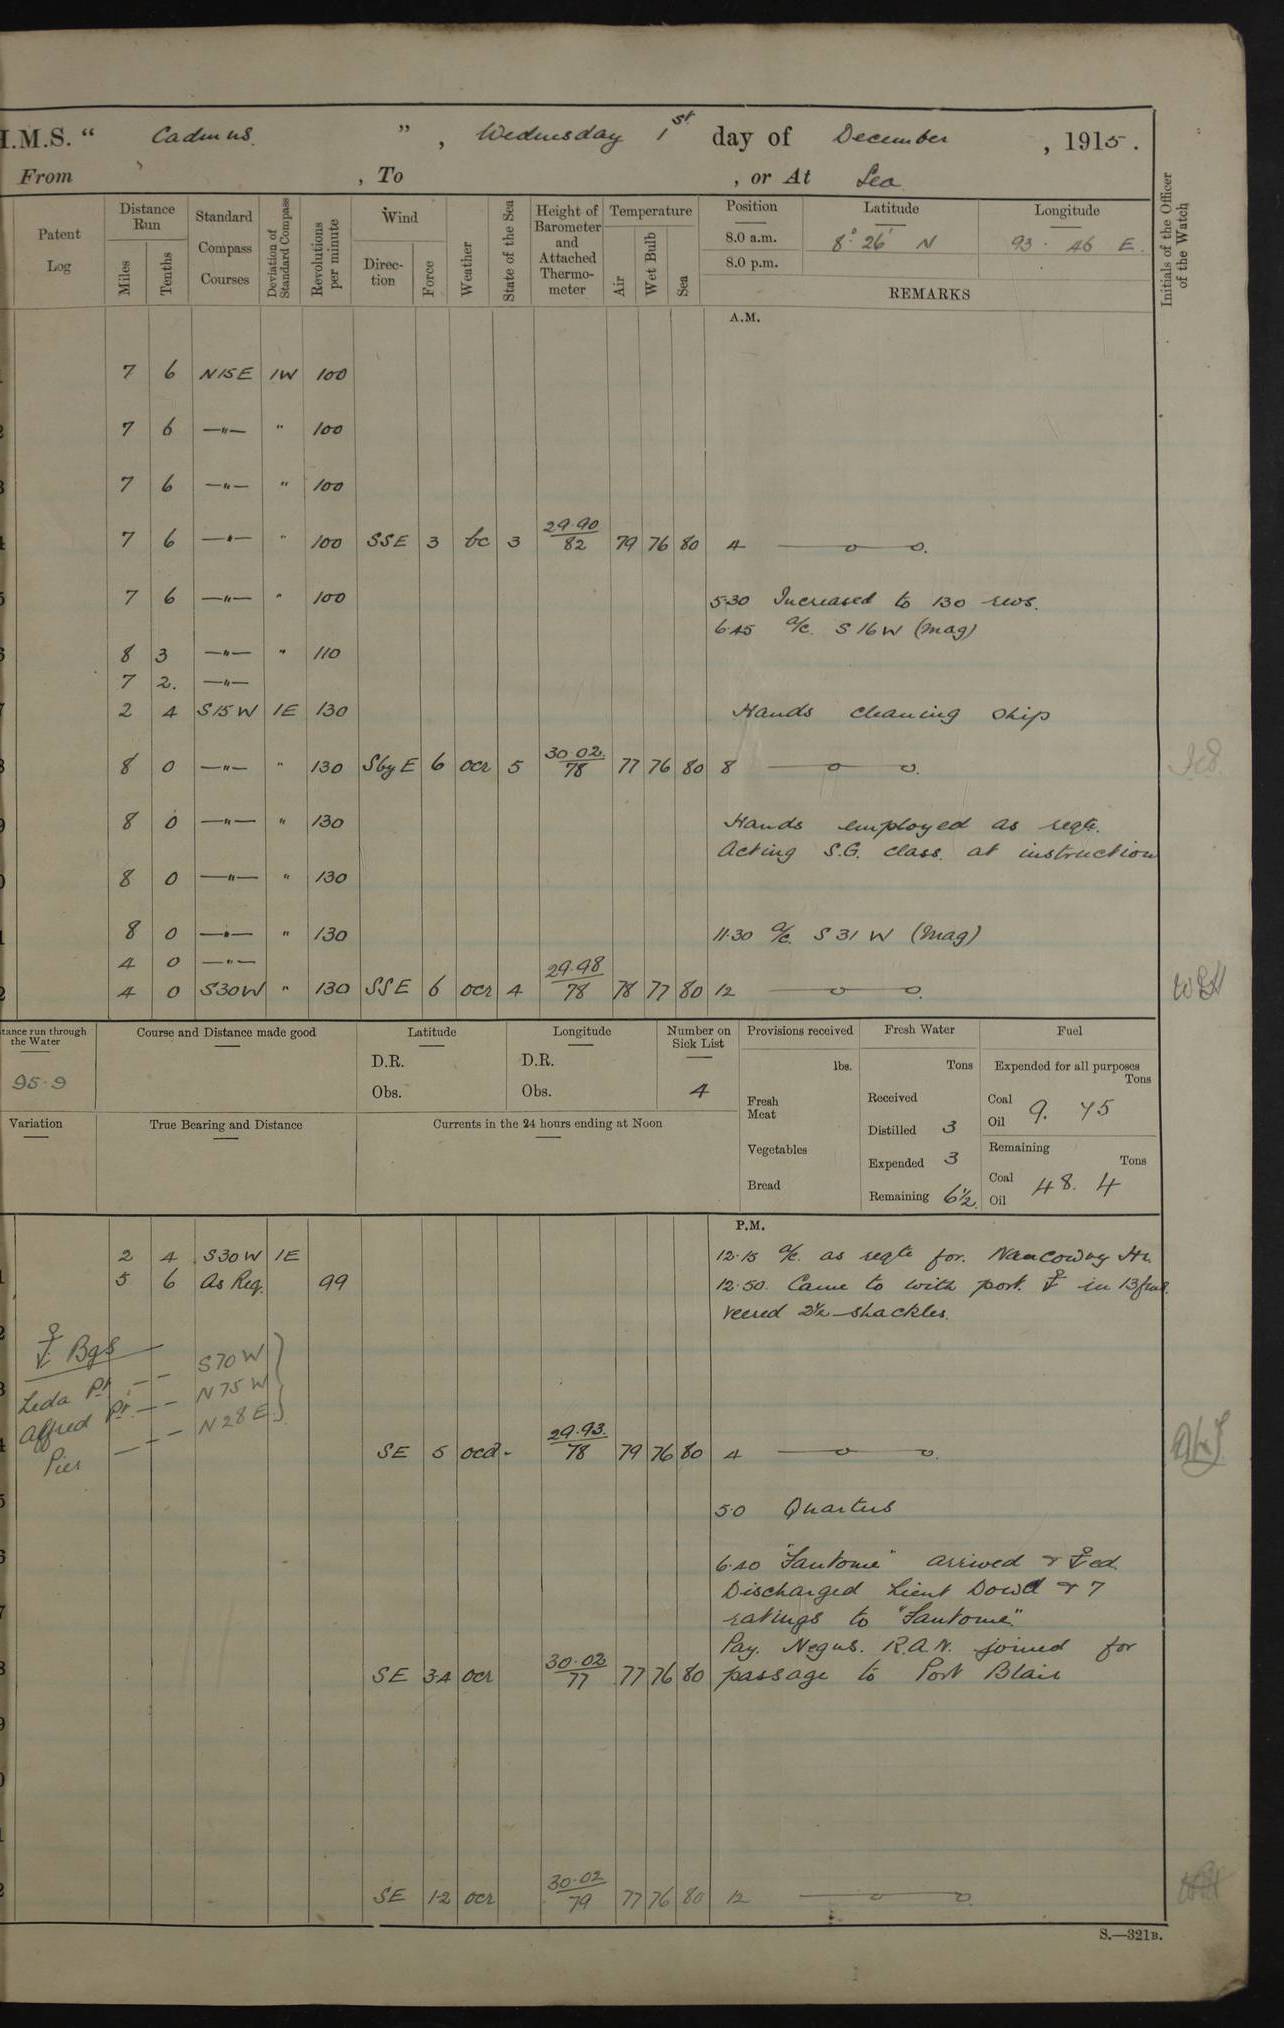 H.M.S. " Cadmus. ", Wednesday 1st day of December, 1915.
From , To , or At Sea
Patent Log
Distance Run
Miles
Tenths
Standard Compass Courses
Deviation of Standard Compass
Revolutions per minute
Wind
Direction
Force
Weather
State of the Sea
Height of Barometer and Attached Thermometer
Temperature
Air
Wet Bulb
Sea
Position
8.0 a.m.
8.0 p.m.
Latitude
8° 26' N
Longitude
93 . 46 E.
REMARKS
Initials of the Officer of the Watch
A.M.
7 6 N15E 1W 100
7 6 —"— " 100
7 6 —"— " 100
7 6 —"— " 100 SSE 3 bc 3 29.90/82 79 76 80 4 ——o——o.
7 6 —"— " 100 5.30 Increased to 130 revs.
6.45 a/c. S 16 W (Mag)
8 3 —"— " 110
7 2. —"—
2 4 S15W 1E 130 Hands cleaning ship
8 0 —"— " 130 SbyE 6 ocr 5 30.02/78 77 76 80 8 ——o——o.
8 0 —"— " 130 Hands employed as reqte.
Acting S.G. class. at instruction
8 0 —"— " 130
8 0 —"— " 130 11.30 a/c. S 31 W (Mag)
4 0 —"—
4 0 S30W " 130 SSE 6 ocr 4 29.98/78 78 77 80 12 ——o——o.
Distance run through the Water
95.9
Course and Distance made good
Latitude
D.R.
Obs.
Longitude
D.R.
Obs.
Number on Sick List
4
Provisions received
lbs.
Fresh Meat
Vegetables
Bread
Fresh Water
Tons
Received
Distilled 3
Expended 3
Remaining 6½
Fuel
Expended for all purposes
Tons
Coal
Oil
9. 45
Remaining
Tons
Coal
Oil
48. 4
Variation
True Bearing and Distance
Currents in the 24 hours ending at Noon
P.M.
2 4 S30W 1E 12.15 a/c. as reqte for. Nancowry Hr.
5 6 As Req. 99 12.50. Came to with port. ⚓ in 13 fms.
veered 2½ shackles.
⚓ Bgs
Leda Pt. —— S70W
Alfred Pt. —— N75W
Pier ——— N28E
SE 5 ocd - 29.93./78 79 76 80 4 ——o——o.
5.0 Quarters
6.40 "Fantome" arrived & ⚓ed.
Discharged Lieut Dowd & 7
ratings to "Fantome".
Pay. Negus. R.A.N. joined for
SE 3.4 ocr 30.02/77 77 76 80 passage to Port Blair
SE 1-2 ocr 30.02/79 77 76 80 12 ——o——o.
S.—321B.